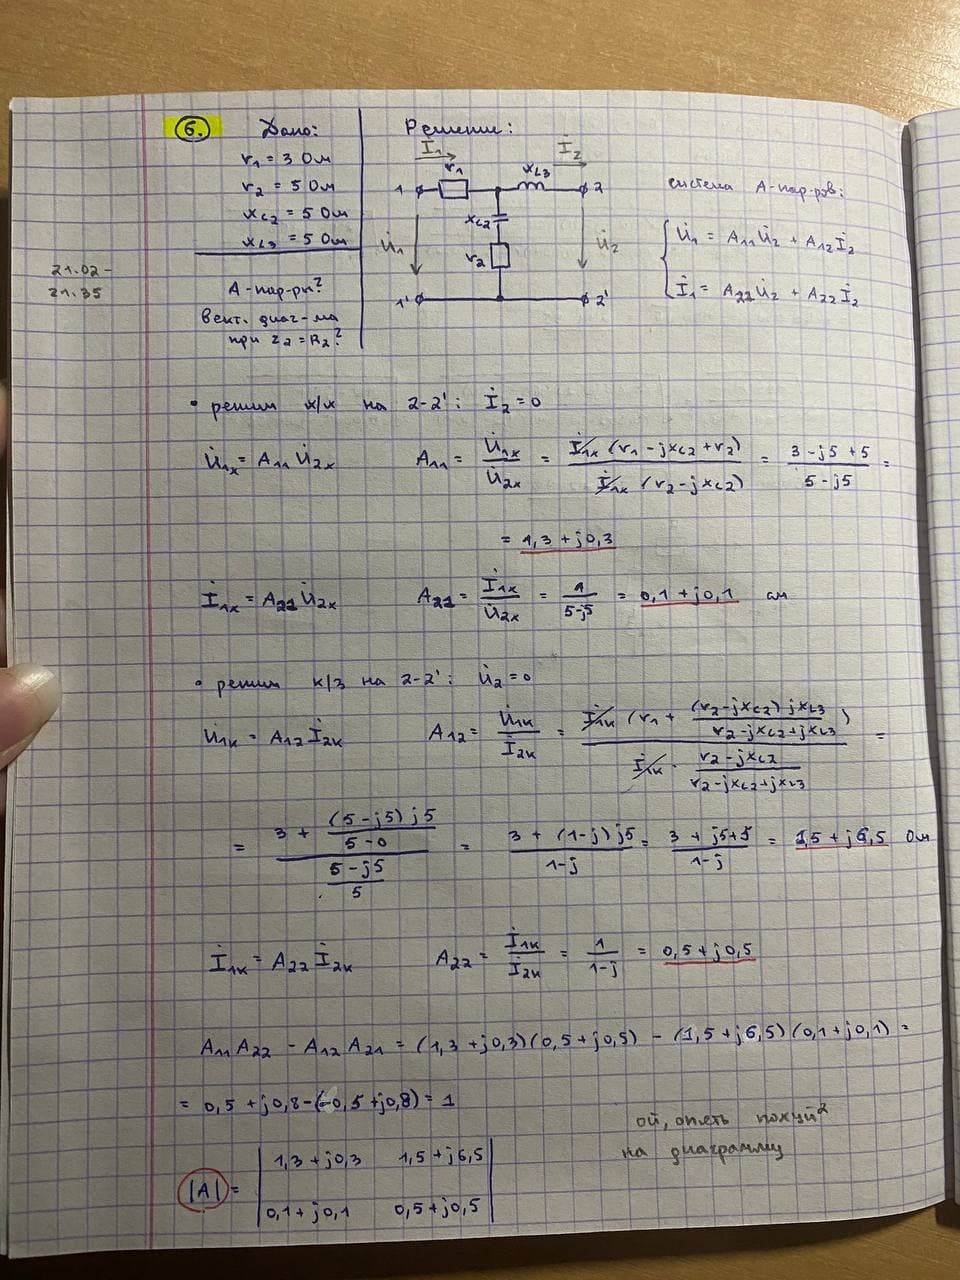 6. Дано: Решение:
r₁ = 3 Ом
r₂ = 5 Ом
x_C2 = 5 Ом
x_L3 = 5 Ом
А-пар-ры?
Вект. диаг-ма
при z₂=R₂?
21.02 –
21.35
İ₁ İ₂
r₁ x_L3
1 2
x_C2
U̇₁ r₂ U̇₂
1' 2'
система А-пар-ров:
U̇₁ = A₁₁U̇₂ + A₁₂İ₂
İ₁ = A₂₂U̇₂ + A₂₂İ₂
• режим х/х на 2-2': İ₂=0
U̇₁ₓ = A₁₁ U̇₂ₓ A₁₁ = U̇₁ₓ/U̇₂ₓ = İ₁ₓ (r₁ - jx_C2 + r₂) / İ₁ₓ (r₂ - jx_C2) = (3 - j5 + 5)/(5 - j5) =
= 1,3 + j0,3
İ₁ₓ = A₂₁ U̇₂ₓ A₂₁ = İ₁ₓ/U̇₂ₓ = 1/(5-j5) = 0,1 + j0,1 см
• режим к/з на 2-2': U̇₂=0
U̇₁ₖ = A₁₂ İ₂ₖ A₁₂ = U̇₁ₖ/İ₂ₖ = İ₁ₖ (r₁ + (r₂ - jx_C2) jx_L3 / (r₂ - jx_C2 + jx_L3)) / (İ₁ₖ · (r₂ - jx_C2)/(r₂ - jx_C2 + jx_L3)) =
= (3 + (5-j5) j5/(5-0)) / ((5-j5)/5) = (3 + (1-j) j5)/(1-j) = (3 + j5+5)/(1-j) = 1,5 + j6,5 Ом
İ₁ₖ = A₂₂ İ₂ₖ A₂₂ = İ₁ₖ/İ₂ₖ = 1/(1-j) = 0,5 + j0,5
A₁₁A₂₂ - A₁₂A₂₁ = (1,3 + j0,3)(0,5 + j0,5) - (1,5 + j6,5)(0,1 + j0,1) =
= 0,5 + j0,8 - (-0,5 + j0,8) = 1
ой, опять похуй²
на диаграмму
|A| = 1,3 + j0,3 1,5 + j6,5
0,1 + j0,1 0,5 + j0,5